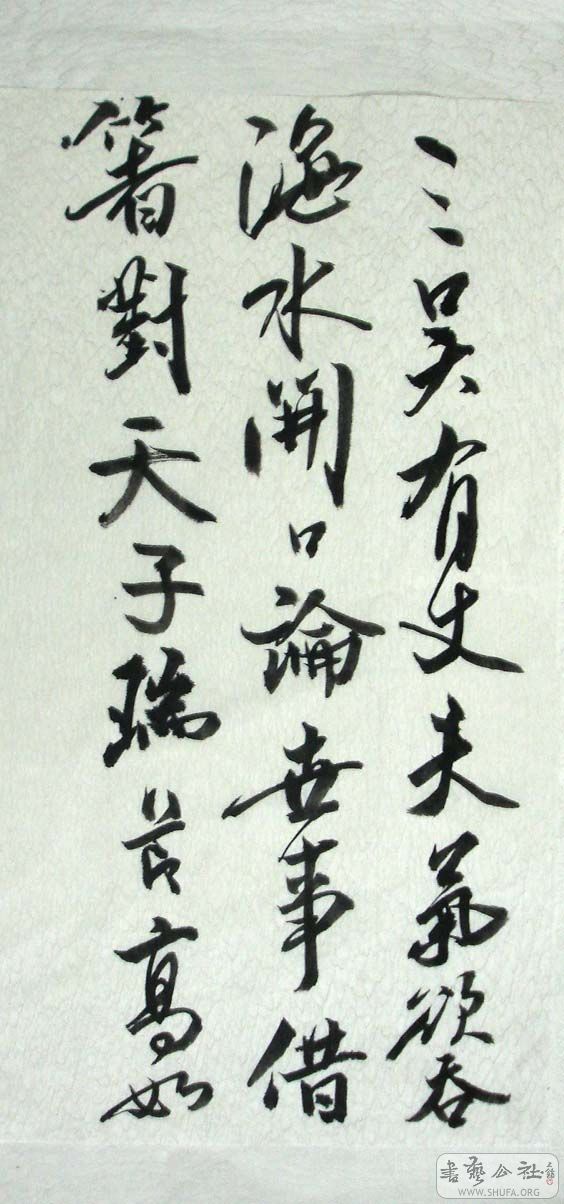 三吴有丈夫氣欲吞
滄水開口論世事借
箸對天子瑞节高如
書藝公社
WWW.SHUFA.ORG